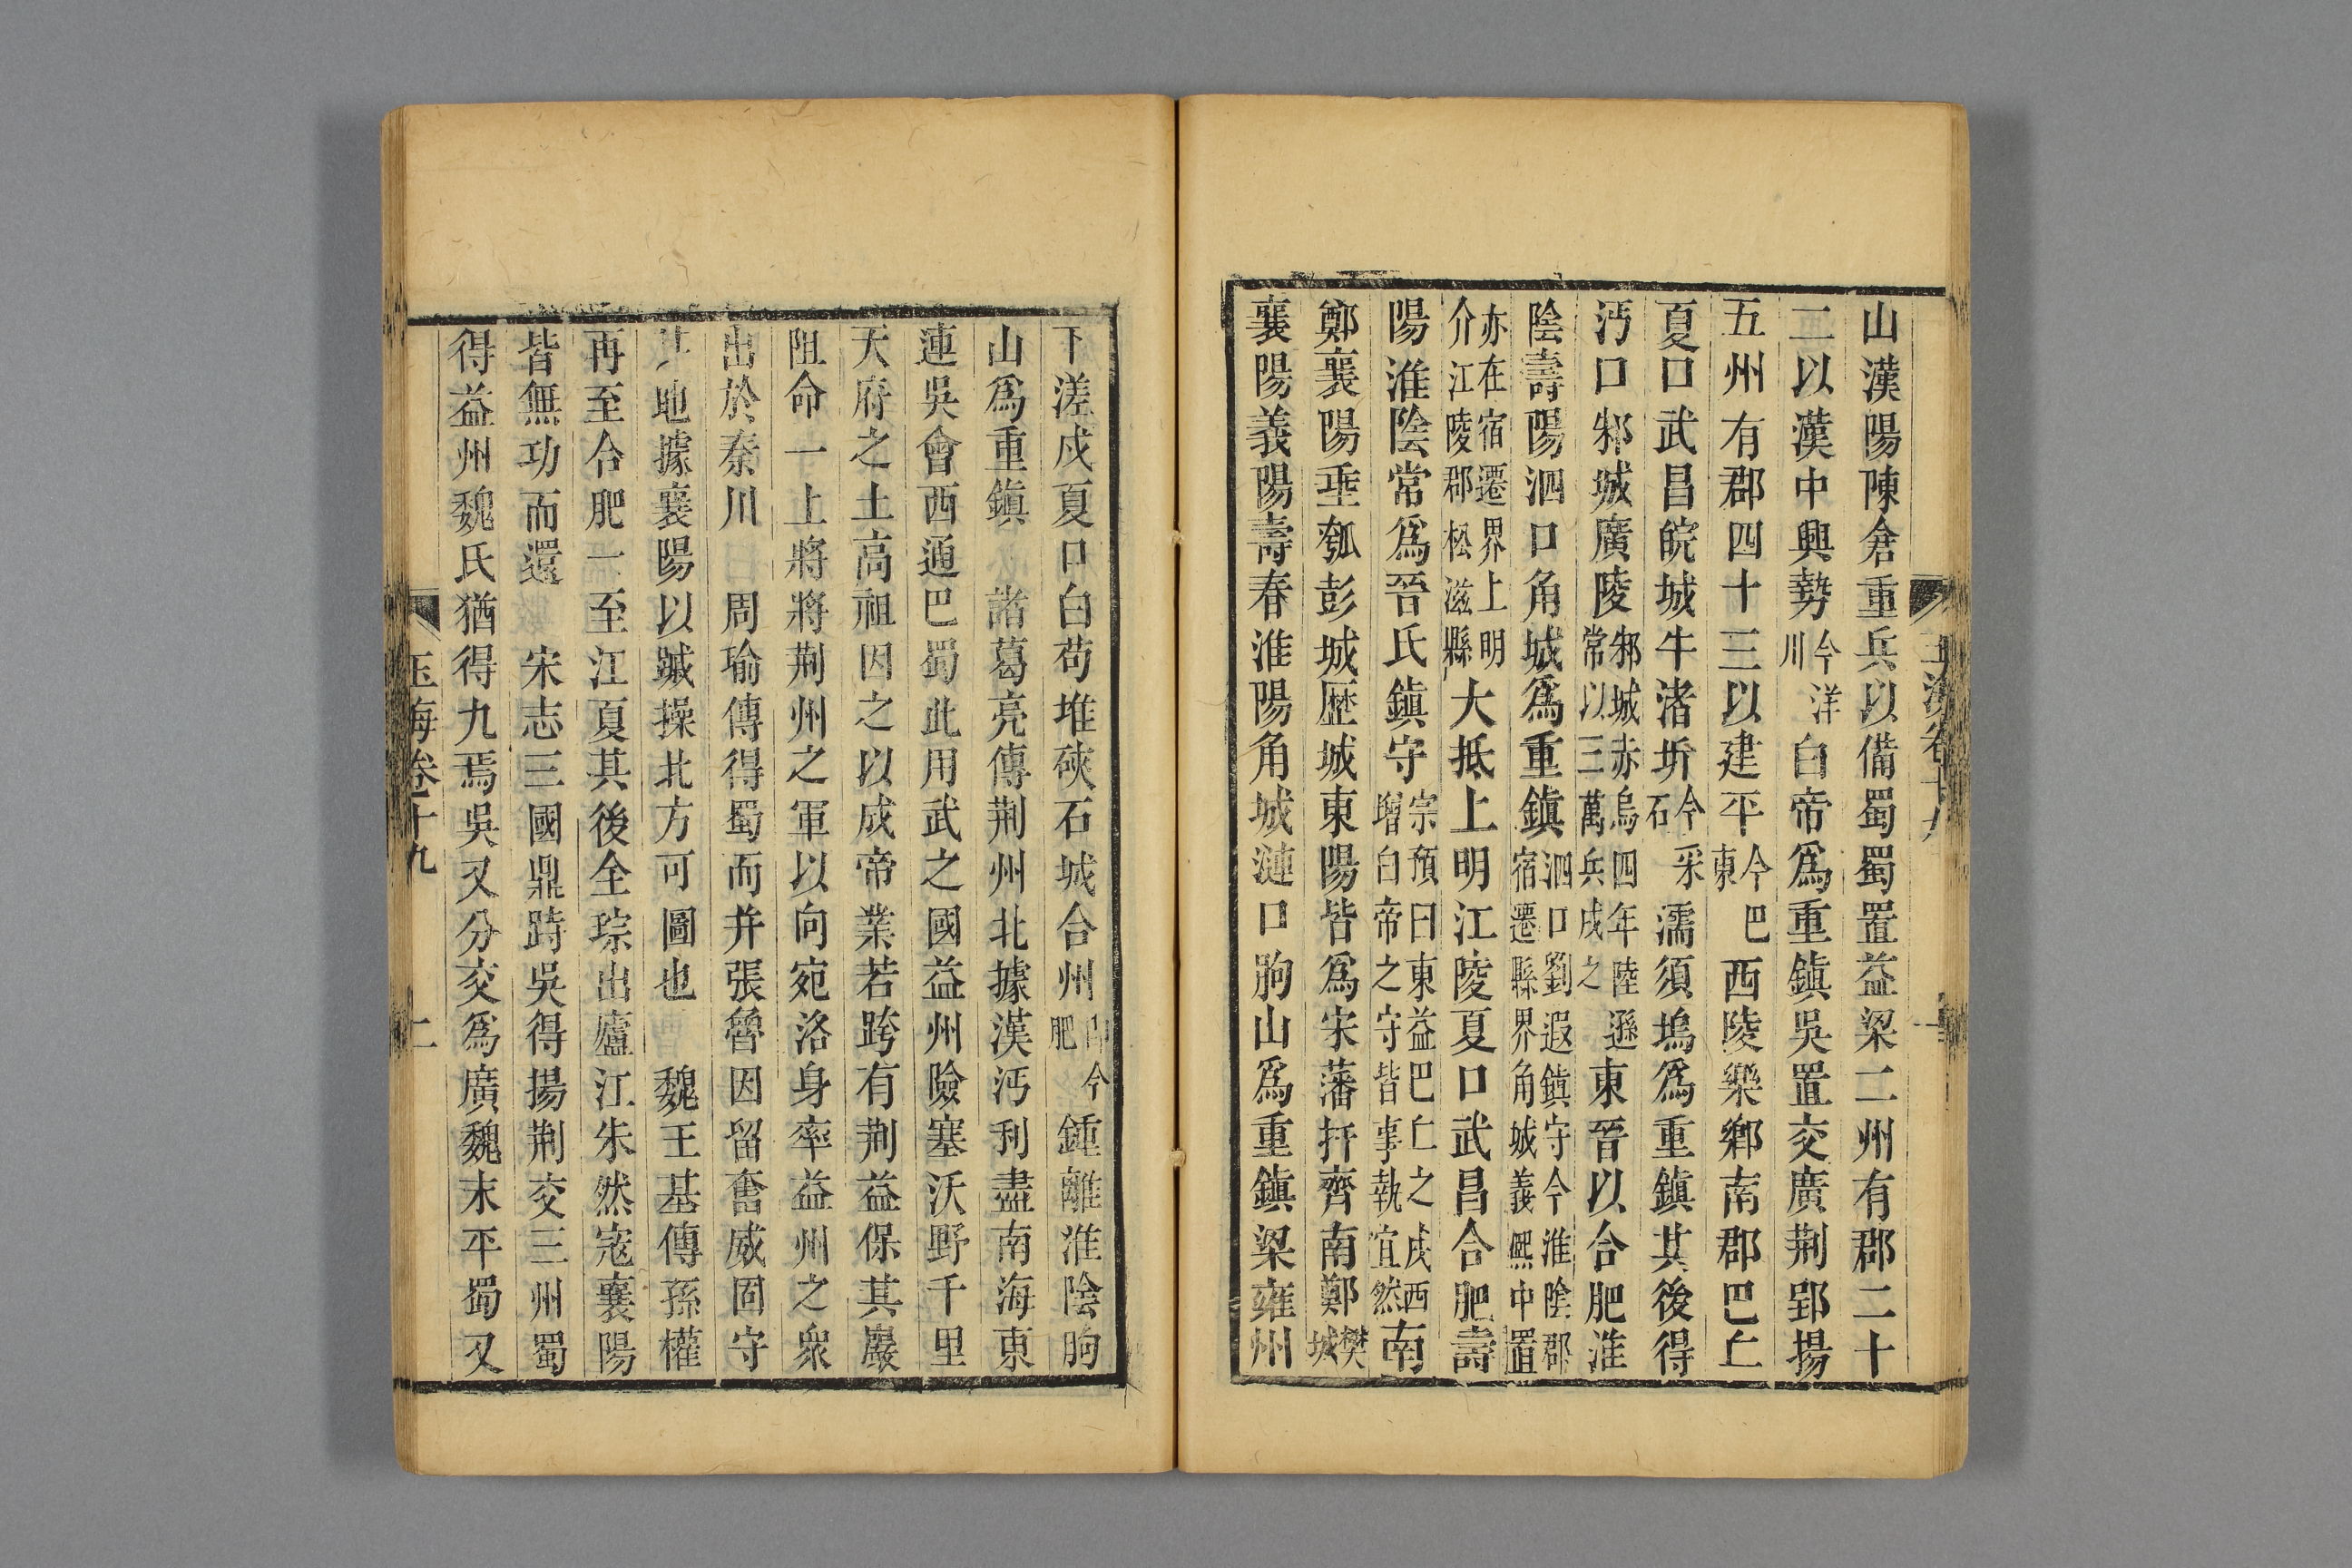 山漢陽陳倉重兵以備蜀蜀置益梁二州有郡二十
二以漢中興勢今洋川白帝爲重鎮吳置交廣荆郢揚
五州有郡四十三以建平今巴東西陵樂鄉南郡巴丘
夏口武昌皖城牛渚圻今采石濡須塢爲重鎮其後得
沔口邾城廣陵邾城赤烏四年陸遜常以三萬兵戍之東晉以合肥淮
陰壽陽泗口角城爲重鎮泗口劉遐鎮守今淮陰郡宿遷縣界角城義熙中置
亦在宿遷界上明介江陵郡松滋縣大抵上明江陵夏口武昌合肥壽
陽淮陰常爲晉氏鎮守宗預曰東益巴丘之戍西增白帝之守皆事執宜然南
鄭襄陽垂瓠彭城歷城東陽皆爲宋藩扞齊南鄭樊城
襄陽義陽壽春淮陽角城漣口朐山爲重鎮梁雍州
下溠戍夏口白苟堆硤石城合州即今合肥鍾離淮陰朐
山爲重鎮 諸葛亮傳荆州北據漢沔利盡南海東
連吳會西通巴蜀此用武之國益州險塞沃野千里
天府之土高祖因之以成帝業若跨有荆益保其巖
阻命一上將將荆州之軍以向宛洛身率益州之衆
出於秦川 周瑜傳得蜀而并張魯因留奮威固守
其地據襄陽以蹙操北方可圖也 魏王基傳孫權
再至合肥一至江夏其後全琮出廬江朱然寇襄陽
皆無功而還 宋志三國鼎跱吳得揚荆交三州蜀
得益州魏氏猶得九焉吳又分交爲廣魏末平蜀又
玉海卷十九 二